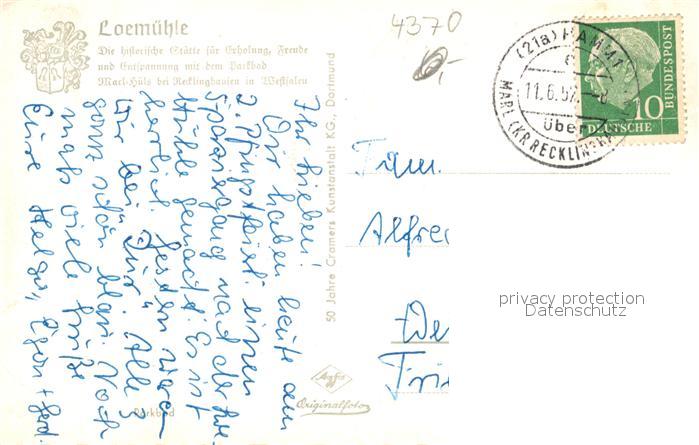 Loemühle
Die historische Stätte für Erholung, Freude
und Entspannung mit dem Parkbad
Marl-Hüls bei Recklinghausen in Westfalen
4370
6,-
(21a) HAMM 1
11.6.57
über
MARL (KR RECKLINGH
10
DEUTSCHE
BUNDESPOST
Ihr Lieben!
Wir haben heute am
2. Pfingstfeiert. einen
Spaziergang nach der Loe-
Mühle gemacht. Es ist
herrlich. Gestern waren
wir bei Alle 3
ganz schön blau. Noch
mals viele Grüße
Eure Helga, Egon +
50 Jahre Cramers Kunstanstalt KG., Dortmund
Fam.
Alfre
We
Fri
privacy protection
Datenschutz
Agfa
Originalfoto
Parkbad